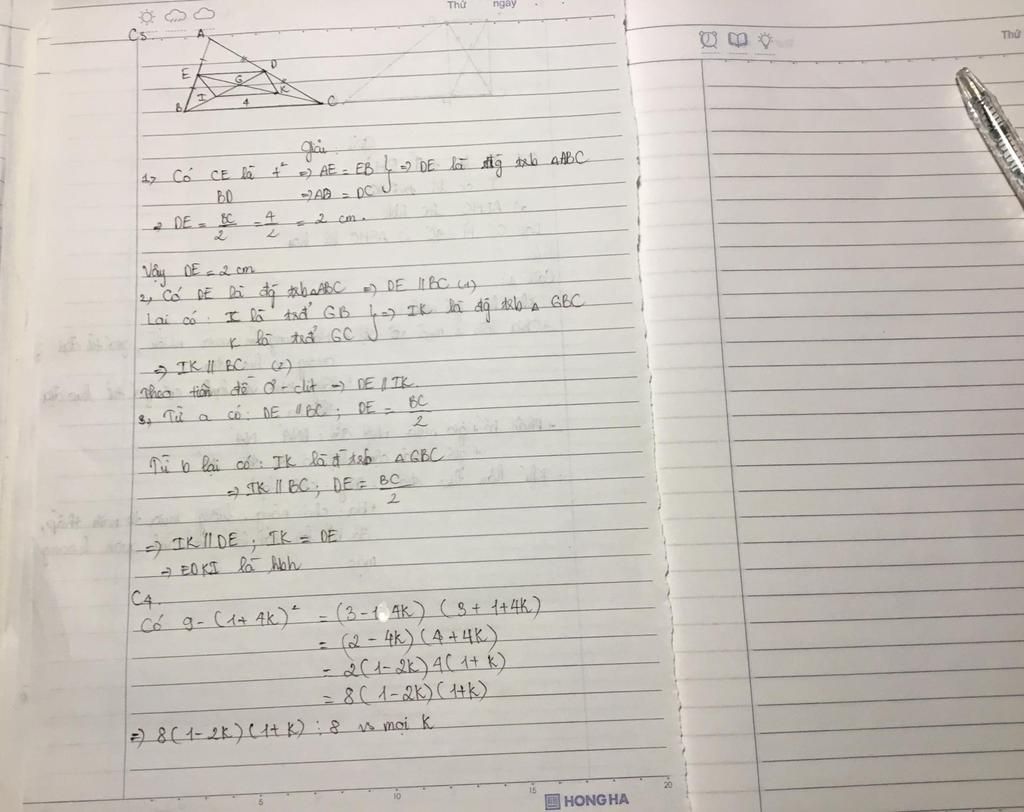 Thứ ngày
Thứ
C3.
A
E D
G
I K
B 4 C
giải
1, Có CE là t² => AE = EB } => DE là đg trb ΔABC
BD => AD = DC
=> DE = BC/2 = 4/2 = 2 cm.
Vậy DE = 2 cm
2, Có DE là đg trb ΔABC => DE // BC (1)
Lại có: I là trđ GB } => IK là đg trb Δ GBC
K là trđ GC
=> IK // BC (2)
Theo tiên đề Ơ-clit => DE // IK.
3, Từ a có: DE // BC ; DE = BC/2
Từ b lại có: IK là đ trb Δ GBC
=> IK // BC ; DE = BC/2
=> IK // DE ; IK = DE
=> EDKI là hbh
C4.
Có 9 - (1 + 4K)² = (3 - 1 4K) (3 + 1 + 4K)
= (2 - 4K) (4 + 4K)
= 2(1 - 2K) 4(1 + K)
= 8(1 - 2K) (1 + K)
=> 8(1 - 2K) (1 + K) ⋮ 8 vs mọi K
5 10 15 20
HONG HA